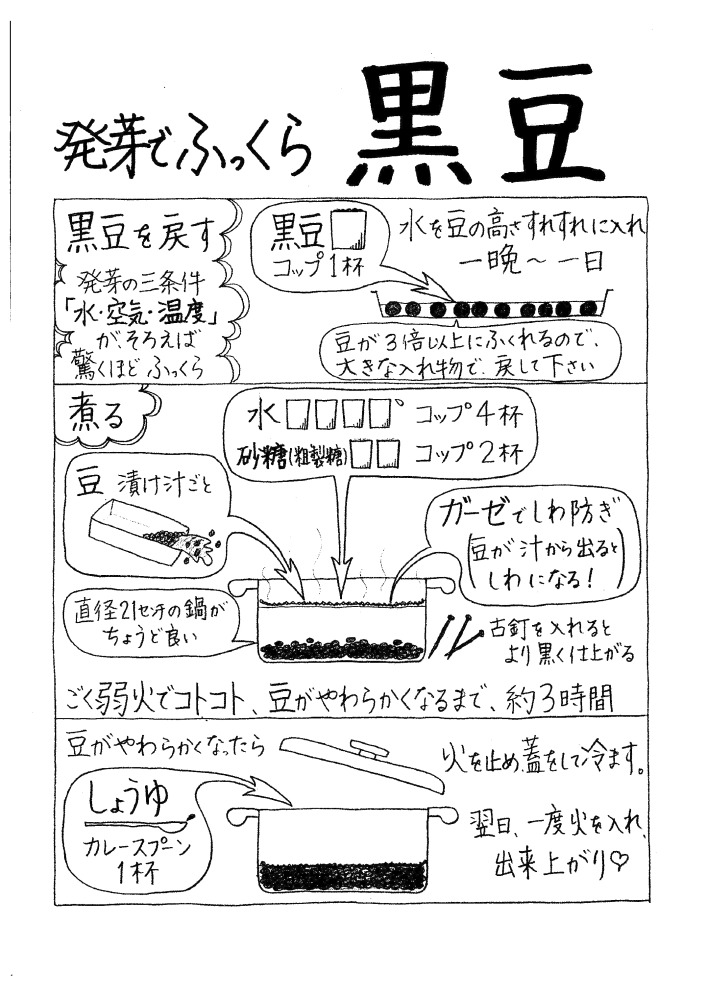 発芽でふっくら 黒豆
黒豆を戻す
発芽の三条件
「水・空気・温度」
が、そろえば
驚くほどふっくら
黒豆
コップ1杯
水を豆の高さすれすれに入れ
一晩〜一日
豆が3倍以上にふくれるので、
大きな入れ物で、戻して下さい
煮る
水 コップ4杯
砂糖(粗製糖) コップ2杯
豆 漬け汁ごと
ガーゼでしわ防ぎ
(豆が汁から出ると
しわになる!)
直径21センチの鍋が
ちょうど良い
古釘を入れると
より黒く仕上がる
ごく弱火でコトコト、豆がやわらかくなるまで、約3時間
豆がやわらかくなったら
しょうゆ
カレースプーン
1杯
火を止め、蓋をして冷ます。
翌日、一度火を入れ、
出来上がり♡